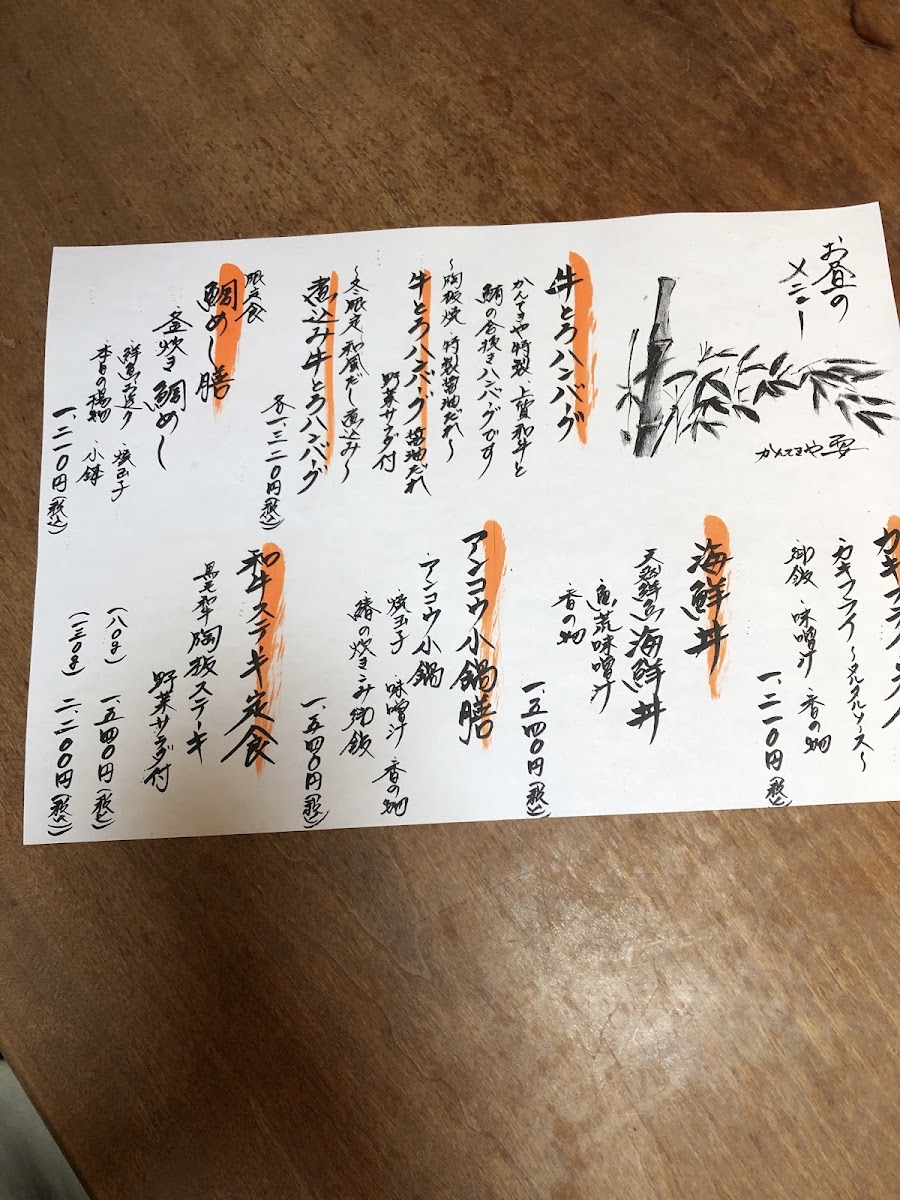 お昼の
メニュー
かんてきや
牛とろハンバーグ
かんてきや特製 上質和牛と
鮪の合挽きハンバーグです
〜陶板焼 特製醤油だれ〜
牛とろハンバーグ 醤油だれ
野菜サラダ付
〜冬限定 和風だし煮込み〜
煮込み牛とろハンバーグ
各一、三二〇円(税込)
限定食
鯛めし膳
釜炊き鯛めし
焼玉子
本日の揚物 小鉢
一、二一〇円(税込)
カキフライ
カキフライ〜タルタルソース〜
御飯 味噌汁 香の物
一、二一〇円(税込)
海鮮丼
天然鮮魚海鮮丼
魚荒味噌汁
香の物
一、五四〇円(税込)
アンコウ小鍋膳
アンコウ小鍋
焼玉子 味噌汁 香の物
炊きこみ御飯
一、五四〇円(税込)
和牛ステーキ定食
黒毛和牛陶板ステーキ
野菜サラダ付
(八〇g) 一、五四〇円(税込)
(一三〇g) 二、二〇〇円(税込)